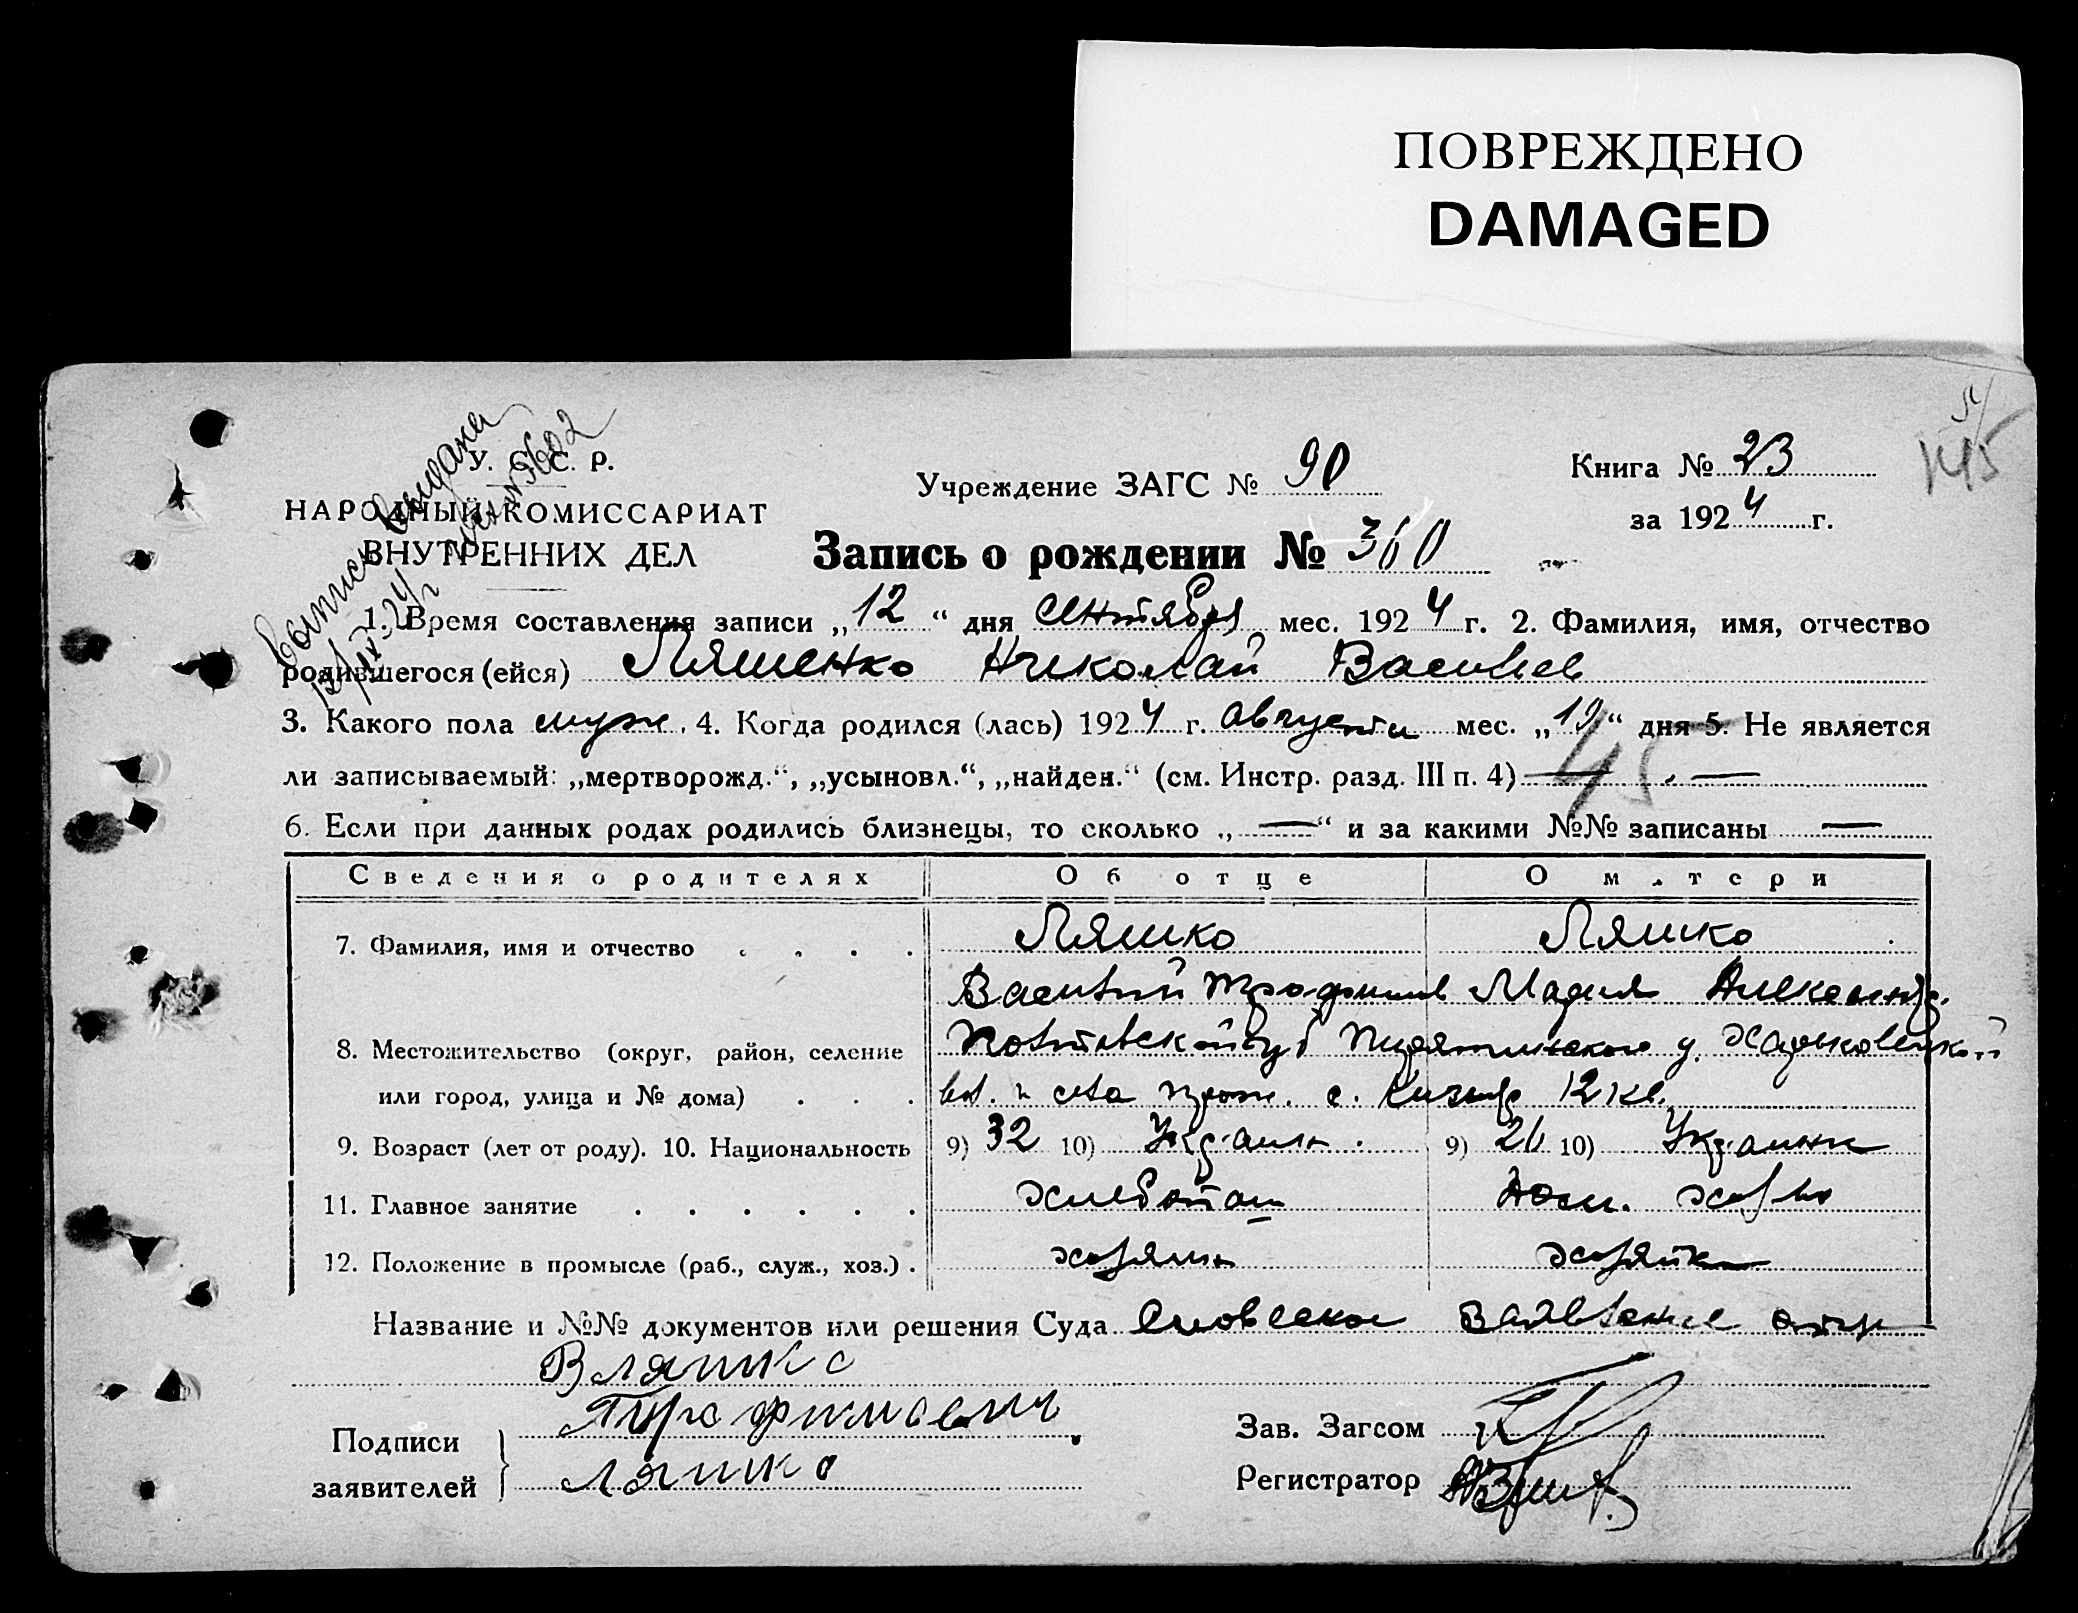 ПОВРЕЖДЕНО
DAMAGED
У. С. С. Р.
НАРОДНЫЙ КОМИССАРИАТ
ВНУТРЕННИХ ДЕЛ
Выпись выдана
Учреждение ЗАГС № 90
Книга № 23
за 1924 г.
К45
Запись о рождении № 360
1. Время составления записи „12“ дня Сентября мес. 1924 г. 2. Фамилия, имя, отчество
родившегося (ейся) Ляшенко Николай Васильев
3. Какого пола муж. 4. Когда родился (лась) 1924 г. августа мес. „19“ дня 5. Не является
ли записываемый: „мертворожд.“, „усыновл.“, „найден.“ (см. Инстр. разд. III п. 4) — . —
45
6. Если при данных родах родились близнецы, то сколько „—“ и за какими №№ записаны —
Сведения о родителях Об отце О матери
7. Фамилия, имя и отчество . . . . Ляшко Ляшко
Василий Трофимов Мария Александр.
8. Местожительство (округ, район, селение Полтавской губ Пирятинского у. Харьковецкой
или город, улица и № дома) . . . вол. и села прож. с. 12 кв.
9. Возраст (лет от роду). 10. Национальность 9) 32 10) Украин. 9) 26 10) Украинк
11. Главное занятие . . . . . . Хлебопаш Дом. хоз-во
12. Положение в промысле (раб., служ., хоз.) . хозяин хозяйка
Название и №№ документов или решения Суда Словесное заявление отца
В Ляшко
Подписи заявителей } Трофимович
Ляшко
Зав. Загсом
Регистратор